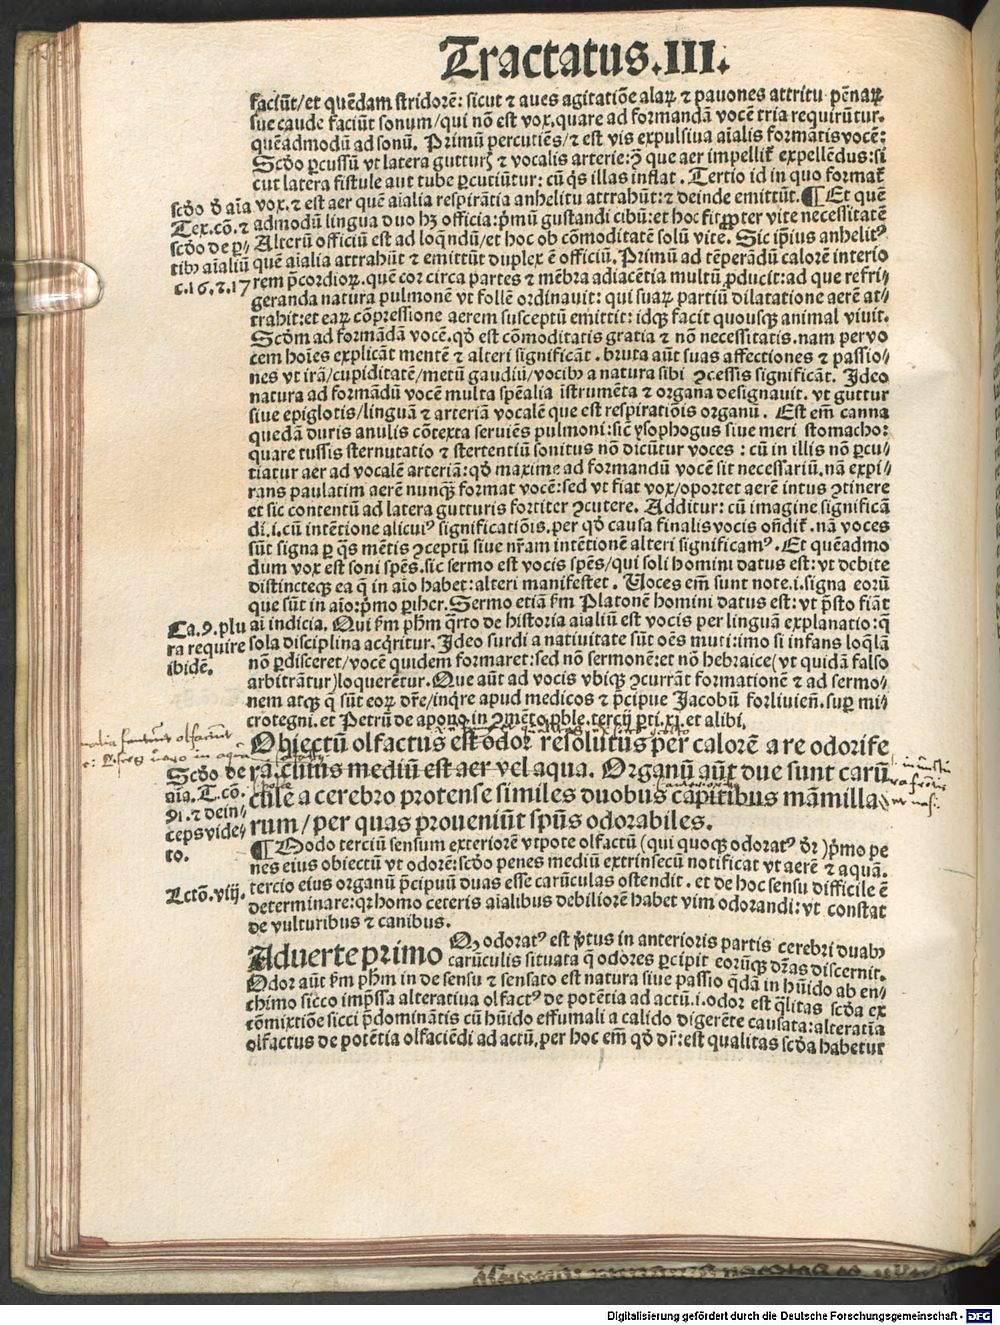 Tractatus.III.
faciūt/et quēdam stridorē: sicut ⁊ aues agitatiōe alaꝝ ⁊ pauones attritu pēnaꝝ
sue caude faciūt sonum/qui nō est vox.quare ad formandā vocē tria requirūtur.
quēadmodū ad sonū. Primū percutiēs/⁊ est vis expulsiua aīalis formatis vocē:
Scḋo ꝑcussū vt latera gutturꝭ ⁊ vocalis arterie: ꝯ̄ que aer impellit̄ expellēdus: si
cut latera fistule aut tube ꝑcutiūtur: cū q̇s illas inflat. Tertio id in quo format̄
vox.⁊ est aer quē aīalia respirātia anhelitu attrahūt: ⁊ deinde emittūt. ¶ Et quē
admodū lingua duo hꝫ officia: p̄mū gustandi cibū: et hoc fit ꝓpter vite necessitatē
Alterū officiū est ad loq̄ndū/et hoc ob cōmoditatē solū vite. Sic ip̄ius anhelitꝰ
quē aīalia attrahūt ⁊ emittūt duplex ē officiū. Primū ad tēperādū calorē interio
rem p̄cordioꝝ. quē cor circa partes ⁊ mēbra adiacētia multū ꝓducit: ad que refri⸗
geranda natura pulmonē vt follē ordinauit: qui suaꝝ partiū dilatatione aerē at⸗
trahit: et eaꝝ cōpressione aerem susceptū emittit: idqꝫ facit quousqꝫ animal viuit.
Scḋm ad formādā vocē.qḋ est cōmoditatis gratia ⁊ nō necessitatis.nam per vo
cem hoīes explicāt mentē ⁊ alteri significāt. bruta aūt suas affectiones ⁊ passio⸗
nes vt irā/cupiditatē/metū gaudiū/vocibꝫ a natura sibi ꝯcessis significāt. Ideo
natura ad formādū vocē multa spēalia īstrumēta ⁊ organa designauit. vt guttur
siue epiglotis/linguā ⁊ arteriā vocalē que est respiratiōis organū. Est em̄ canna
quedā duris anulis cōtexta seruiēs pulmoni: sic̄ ysophogus siue meri stomacho:
quare tussis sternutatio ⁊ stertentiū sonitus nō dicūtur voces: cū in illis nō ꝑcu⸗
tiatur aer ad vocalē arteriā: qḋ maxime ad formandū vocē sit necessariū.nā expi⸗
rans paulatim aerē nunqꝫ̄ format vocē: sed vt fiat vox/oportet aerē intus ꝯtinere
et sic contentū ad latera gutturis fortiter ꝯcutere. Additur: cū imagine significā
di.i.cū intētione alicuiꝰ significatiōis.per qḋ causa finalis vocis on̄dit̄. nā voces
sūt signa ꝑ q̄s mētis ꝯceptū siue nr̄am intētionē alteri significamꝰ. Et quēadmo
dum vox est soni spēs.sic sermo est vocis spēs/qui soli homini datus est: vt debite
distincteqꝫ ea q̄ in aīo habet: alteri manifestet. Voces em̄ sunt note.i.signa eorū
que sūt in aīo: p̄mo ꝑiher. Sermo etiā ẜm Platonē homini datus est: vt p̄sto fiāt
ai indicia. Qui ẜm phm̄ q̄rto de historia aīaliū est vocis per linguā explanatio: q̄
sola disciplina acq̇ritur. Ideo surdi a natiuitate sūt oēs muti: imo si infans loq̄lā
nō ꝑdisceret/vocē quidem formaret: sed nō sermonē: et nō hebraice (vt quidā falso
arbitrātur) loquerētur. Que aūt ad vocis vbiqꝫ ꝯcurrāt formationē ⁊ ad sermo⸗
nem atqꝫ q̄ sūt eoꝝ dr̄e/inq̇re apud medicos ⁊ p̄cipue Jacobū forliuien̄. suꝑ mi⸗
crotegni. et Petrū de apono in ꝯmēto ꝓble. tercij ꝑti.xi. et alibi.
Scḋo ḋ aīa
Tex.cō.⁊
scḋo de ꝑ⸗
tibꝫ aīaliū
c.16.⁊.17
Ca.9.plu
ra require
ibidē.
Obiectū olfactus est odor resolutus per calorē a re odorife
ra. cuius mediū est aer vel aqua. Organū aūt due sunt carū
cule a cerebro protense similes duobus capitibus māmilla⸗
rum/per quas proueniūt spūs odorabiles.
Scḋo de
aīa. T.cō.
91.⁊ dein⸗
ceps vide⸗
to.
¶ Modo terciū sensum exteriorē vtpote olfactū (qui quoqꝫ odoratꝰ dr̄) p̄mo pe
nes eius obiectū vt odorē: scḋo penes mediū extrinsecū notificat vt aerē ⁊ aquā.
tercio eius organū p̄cipuū duas esse carūculas ostendit. et de hoc sensu difficile ē
determinare: qꝛ homo ceteris aīalibus debiliorē habet vim odorandi: vt constat
de vulturibus ⁊ canibus.
Lctō.viij.
Aduerte primo Qꝫ odoratꝰ est v̄tus in anterioris partis cerebri duabꝫ
carūculis situata q̄ odores ꝑcipit eorūqꝫ dr̄as discernit.
Odor aūt ẜm phm̄ in de sensu ⁊ sensato est natura siue passio q̄dā in hūido ab en⸗
chimo sicco imp̄ssa alteratiua olfactꝰ de potētia ad actū.i.odor est q̄litas scḋa ex
cōmixtiōe sicci p̄dominātis cū hūido effumali a calido digerēte causata: alteratīa
olfactus de potētia olfaciēdi ad actū, per hoc em̄ qḋ dr̄: est qualitas scḋa habetur
Digitalisierung gefördert durch die Deutsche Forschungsgemeinschaft - DFG